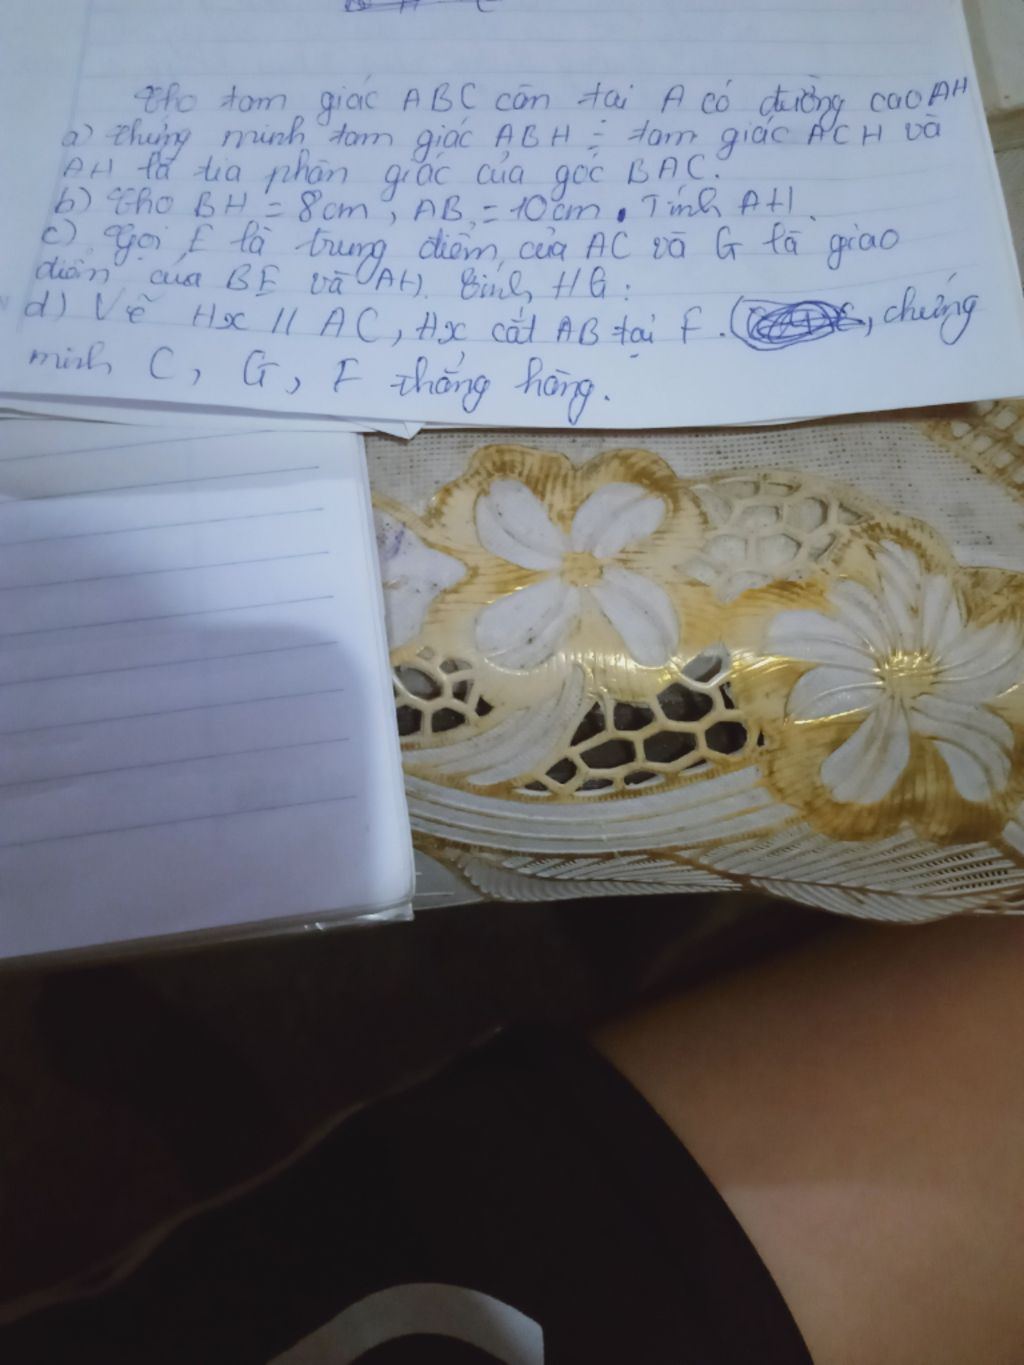 Cho tam giác ABC cân tại A có đường cao AH
a) Chứng minh tam giác ABH = tam giác ACH và
AH là tia phân giác của góc BAC.
b) Cho BH = 8cm, AB = 10cm. Tính AH.
c) Gọi E là trung điểm của AC và G là giao
điểm của BE và AH. Tính HG.
d) Vẽ Hx // AC, Hx cắt AB tại F. , chứng
minh C, G, F thẳng hàng.